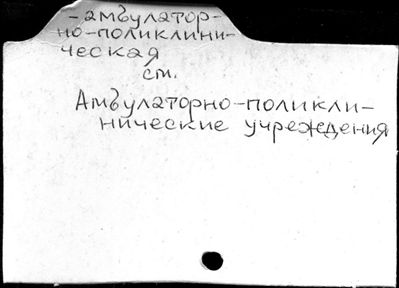 -амбулатор-
но-поликлини-
ческая
см.
Амбулаторно-поликли-
нические учреждения